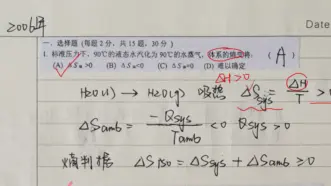 2006年
Date
一. 选择题 (每题 2 分，共 15 题，30 分)
1. 标准压力下，90℃的液态水汽化为 90℃的水蒸气，体系的熵变将： (A)
(A) ΔS体>0 (B) ΔS体<0 (C) ΔS体=0 (D) 难以确定
ΔH>0
H2O(l) → H2O(g) 吸热 ΔSsys = ΔH/T > 0
ΔSamb = -Qsys/Tamb < 0 Qsys > 0
熵判据 ΔSiso = ΔSsys + ΔSamb ≥ 0